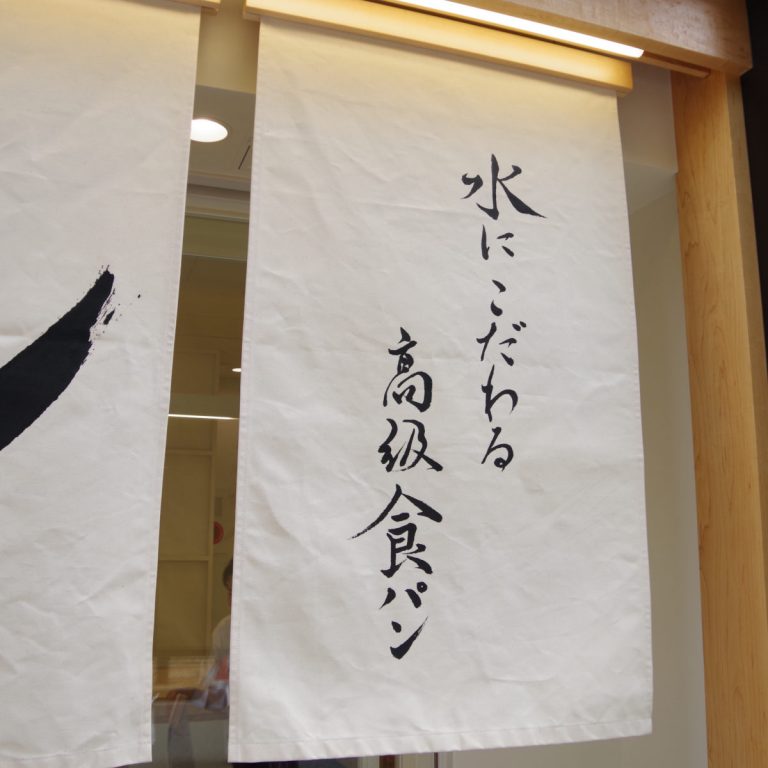 水にこだわる
高級食パン